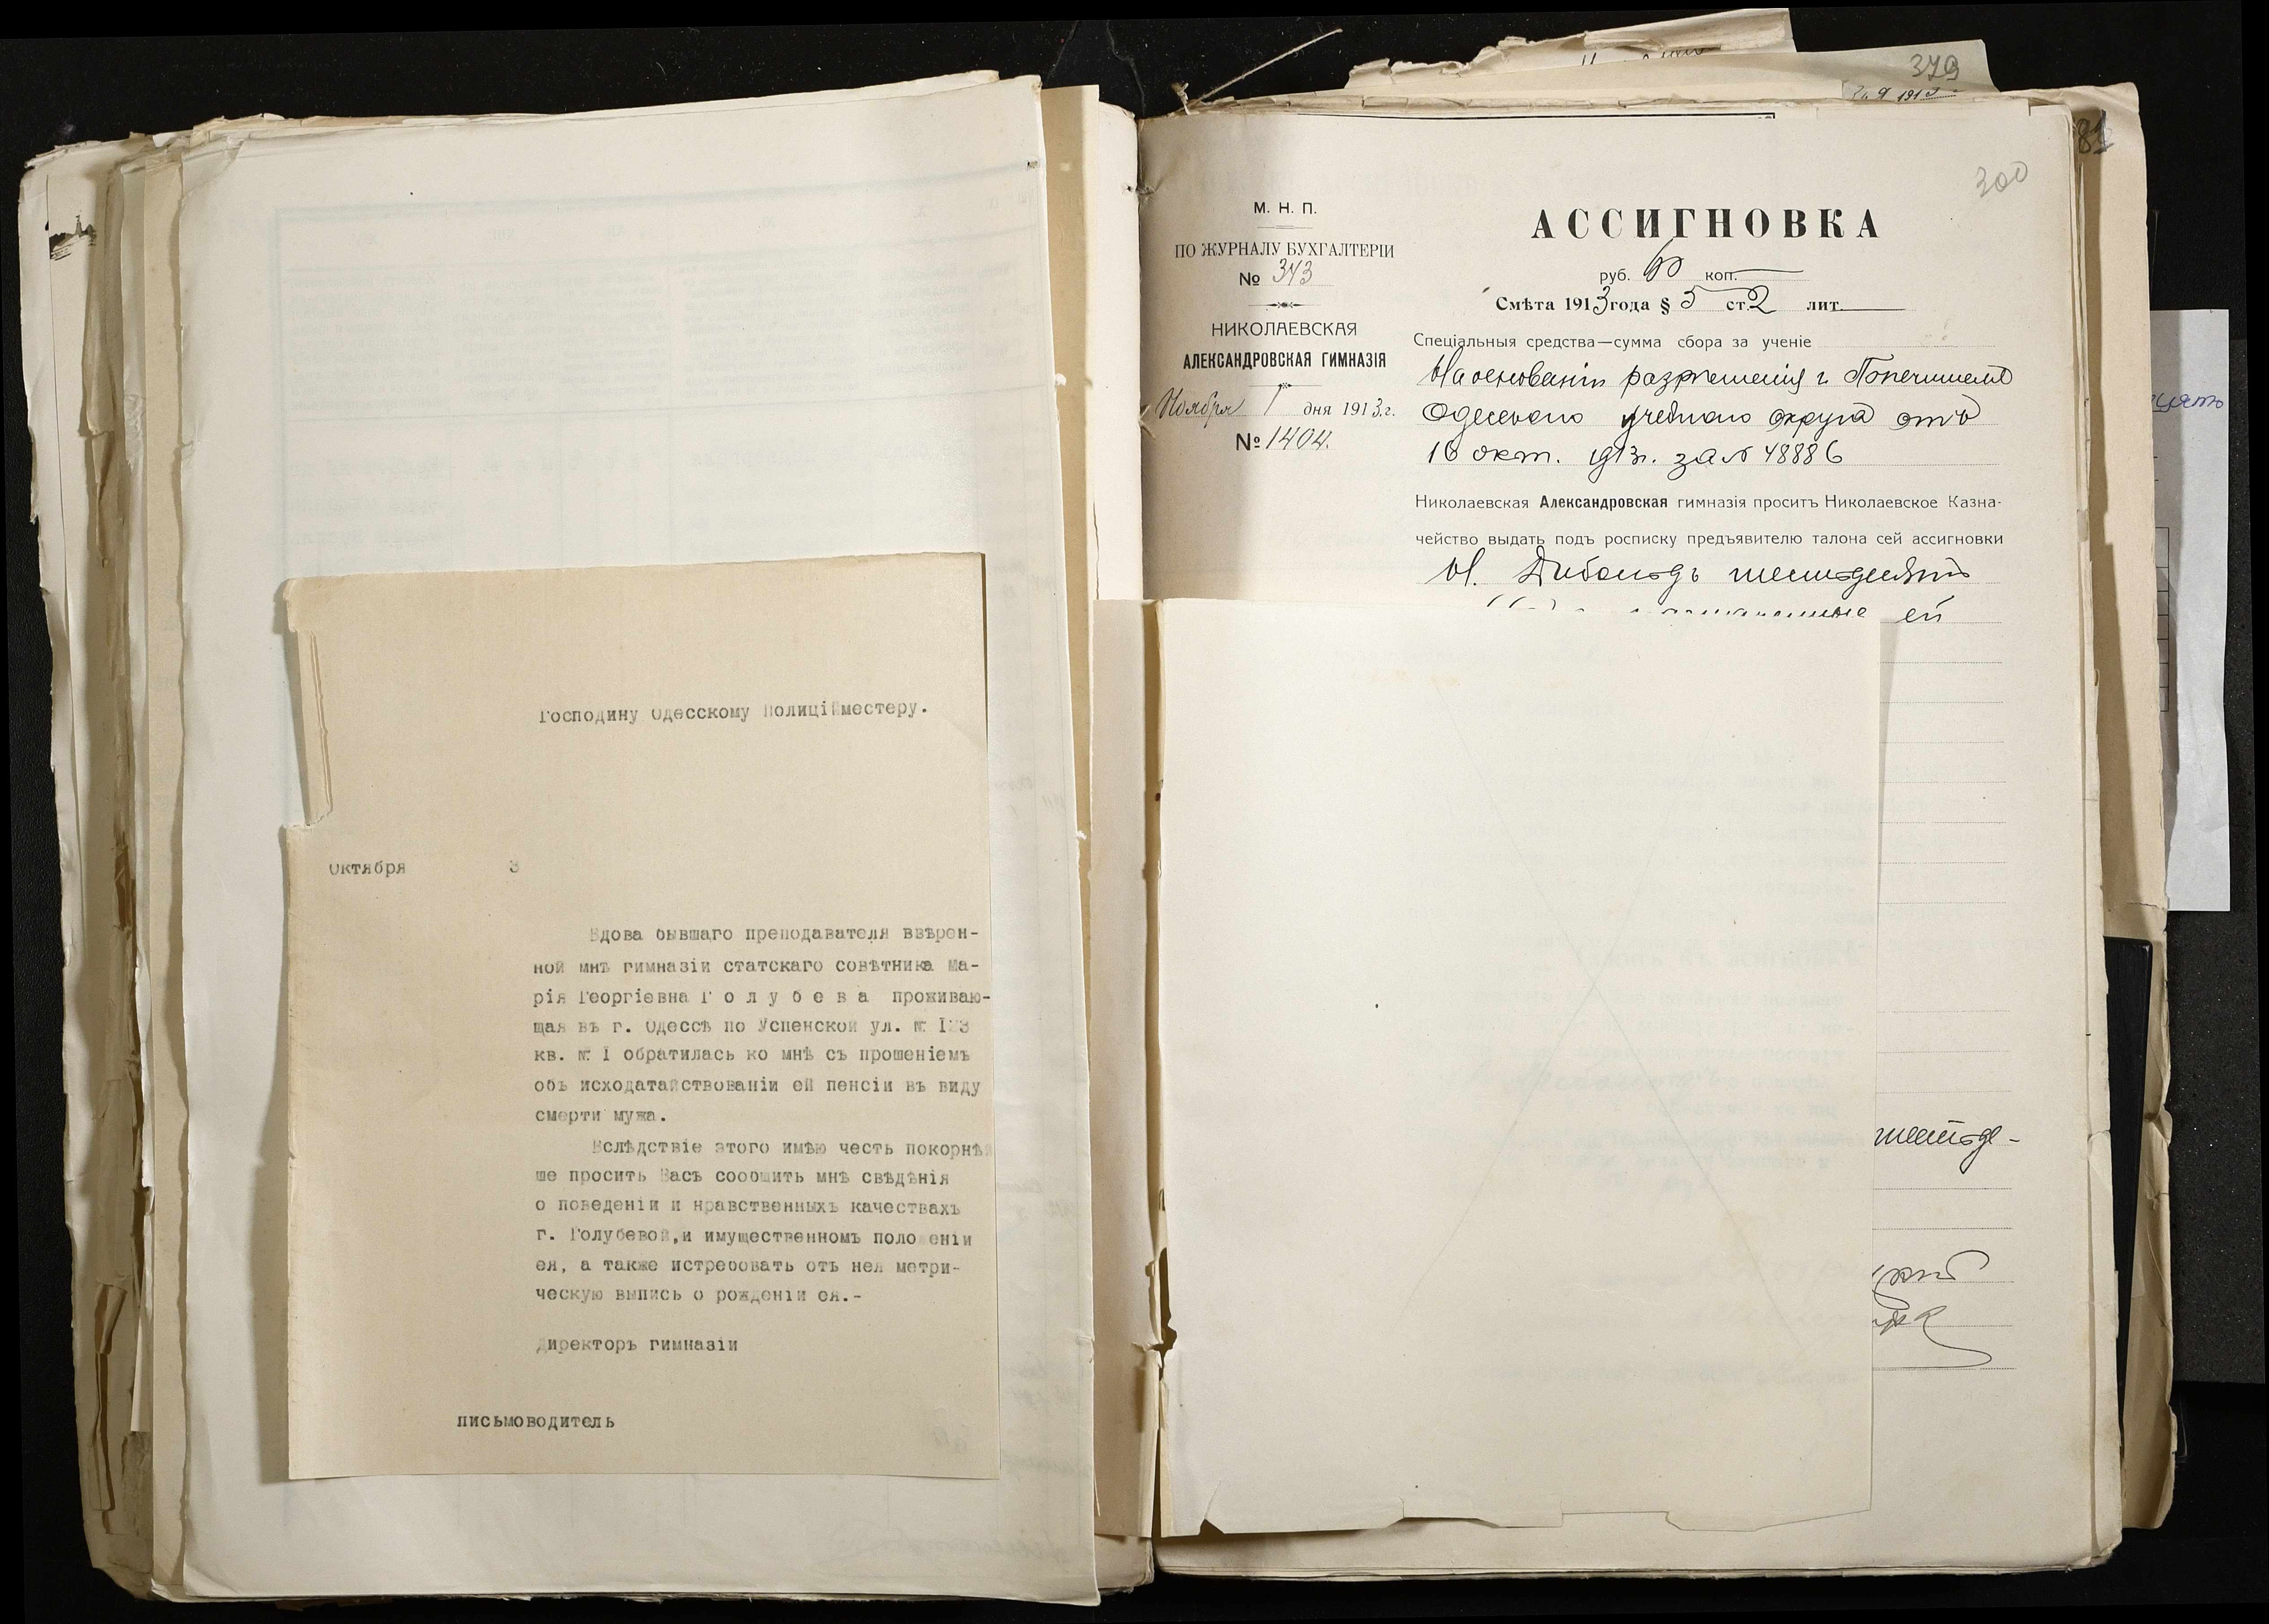 Господину Одесскому Полиціймейстеру.
Октября 3
Вдова бывшаго преподавателя ввѣрен-
ной мнѣ гимназіи статскаго совѣтника Ма-
рія Георгіевна Г о л у б е в а проживаю-
щая въ г. Одессѣ по Успенской ул. № I23
кв. № I обратилась ко мнѣ съ прошеніемъ
объ исходатайствованіи ей пенсіи въ виду
смерти мужа.
Вслѣдствіе этого имѣю честь покорнѣй
ше просить Васъ сообщить мнѣ свѣдѣнія
о поведеніи и нравственныхъ качествахъ
г. Голубевой,и имущественномъ положеніи
ея, а также истребовать отъ нея метри-
ческую выпись о рожденіи ея.-
Директоръ гимназіи
письмоводитель
379
81
300
М. Н. П.
ПО ЖУРНАЛУ БУХГАЛТЕРІИ
№ 343
НИКОЛАЕВСКАЯ
АЛЕКСАНДРОВСКАЯ ГИМНАЗІЯ
Ноября 1 дня 1913.г.
№ 1404.
АССИГНОВКА
руб. 60 коп.
Смѣта 1913 года § 5 ст. 2 лит.
Спеціальныя средства—сумма сбора за ученіе
На основаніи разрѣшенія г. Попечителя
Одесскаго учебнаго округа отъ
16 окт. 1913г. за № 48886
Николаевская Александровская гимназія проситъ Николаевское Казна-
чейство выдать подъ росписку предъявителю талона сей ассигновки
шестьдесятъ
ей
шестьде-